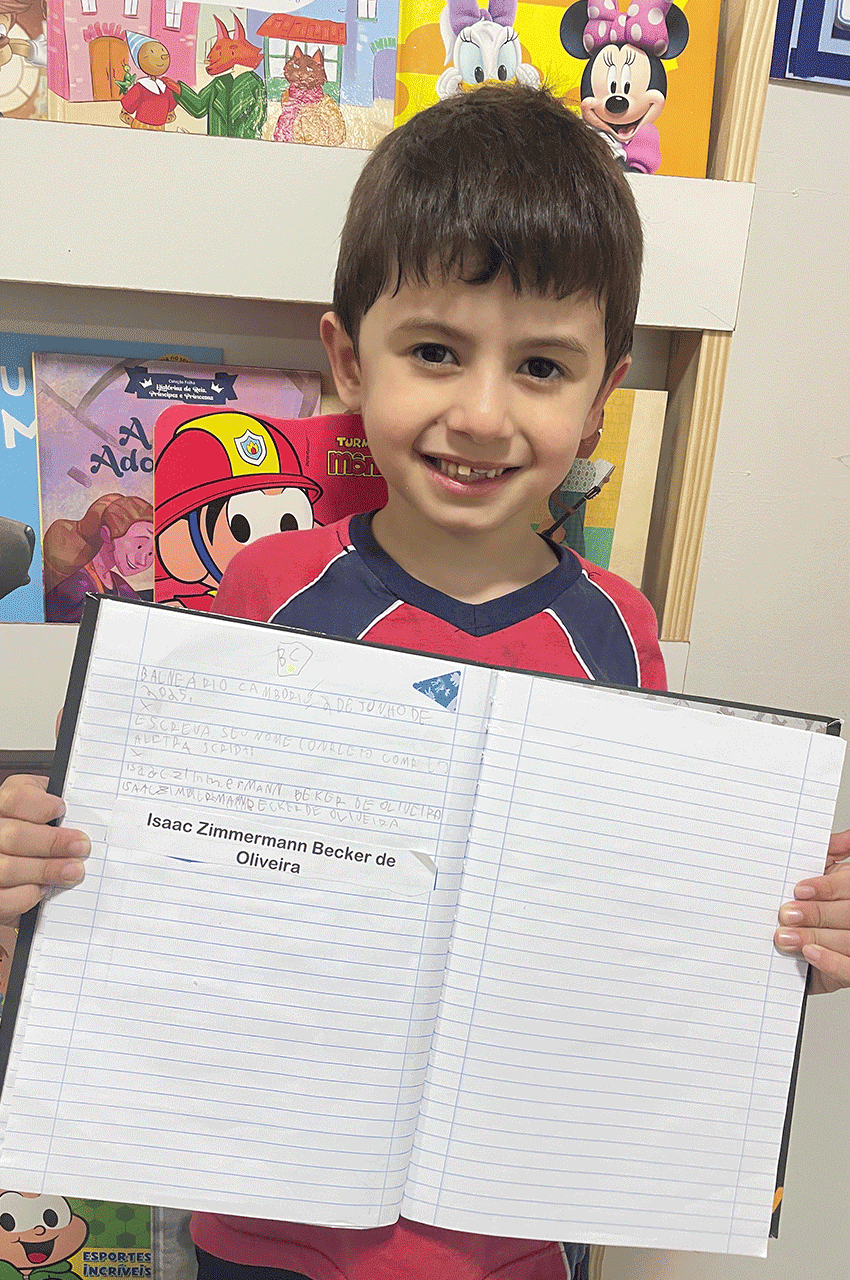 Coleção Folha
Histórias de Reis,
Príncipes e Princesas
TURM
MÔN
BC
BALNEÁRIO CAMBORIÚ 2 DE JUNHO DE
2025.
ESCREVA SEU NOME COMPLETO COM
ALETRA SCRIPT
ISAAC ZIMMERMANN BEKER DE OLIVEIRA
ISAAC ZIMMERMANN BECKER DE OLIVEIRA
Isaac Zimmermann Becker de
Oliveira
ESPORTES
INCRÍVEIS